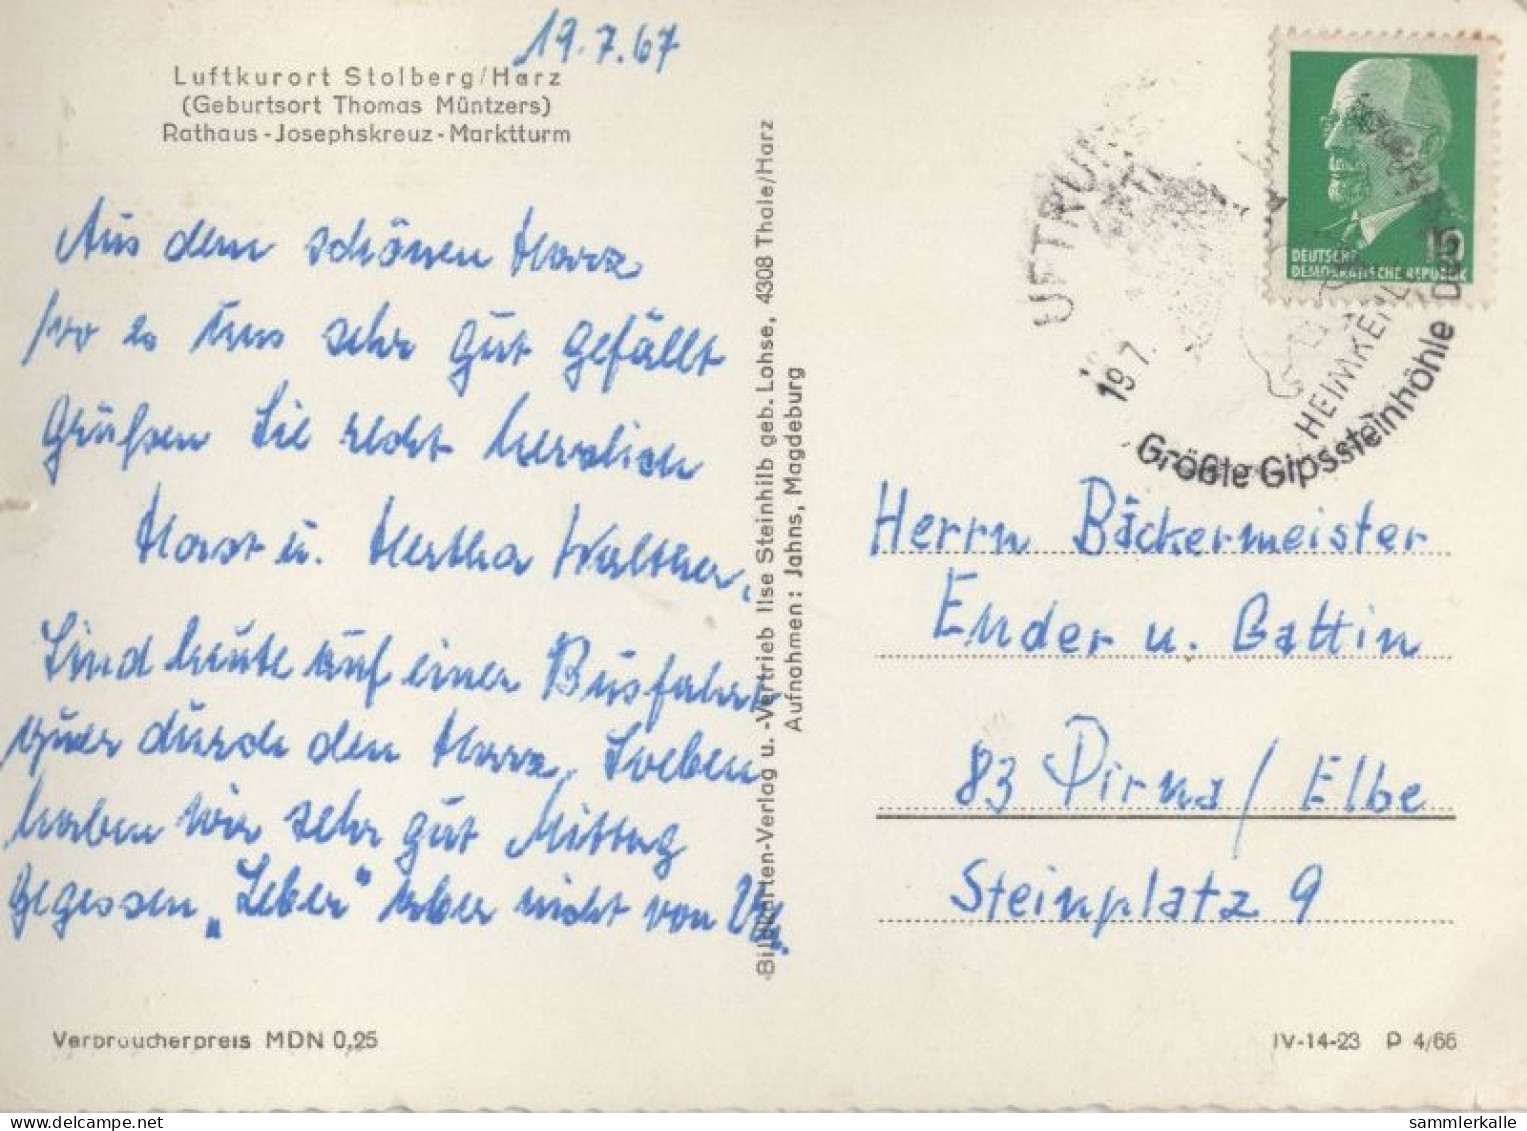 19.7.67
Luftkurort Stolberg/Harz
(Geburtsort Thomas Müntzers)
Rathaus - Josephskreuz - Marktturm
Aus dem schönen Harz
wo es uns sehr gut gefällt
Grüßen Sie recht herzlich
Horst u. Hertha Walther.
Sind heute auf einer Busfahrt
quer durch den Harz. Soeben
haben wir sehr gut Mittag
gegessen „Leber" aber nicht von
Verbraucherpreis MDN 0,25
Bildkarten-Verlag u. -Vertrieb Ilse Steinhilb geb. Lohse, 4308 Thale/Harz
Aufnahmen: Jahns, Magdeburg
DEUTSCHE
DEMOKRATISCHE REPUBLIK
10
UFTRUN
19.7.
HEIMKEHL
Größte Gipssteinhöhle
Herrn Bäckermeister
Ender u. Gattin
83 Pirna / Elbe
Steinplatz 9
IV-14-23 P 4/66
sammlerkalle